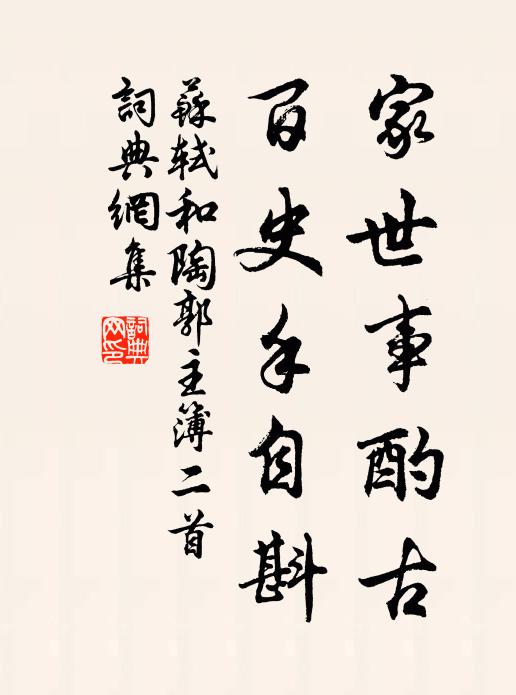 家世事酌古
百史手自斟
蘇軾和陶郭主簿二首
詞典網集
詞典
网印